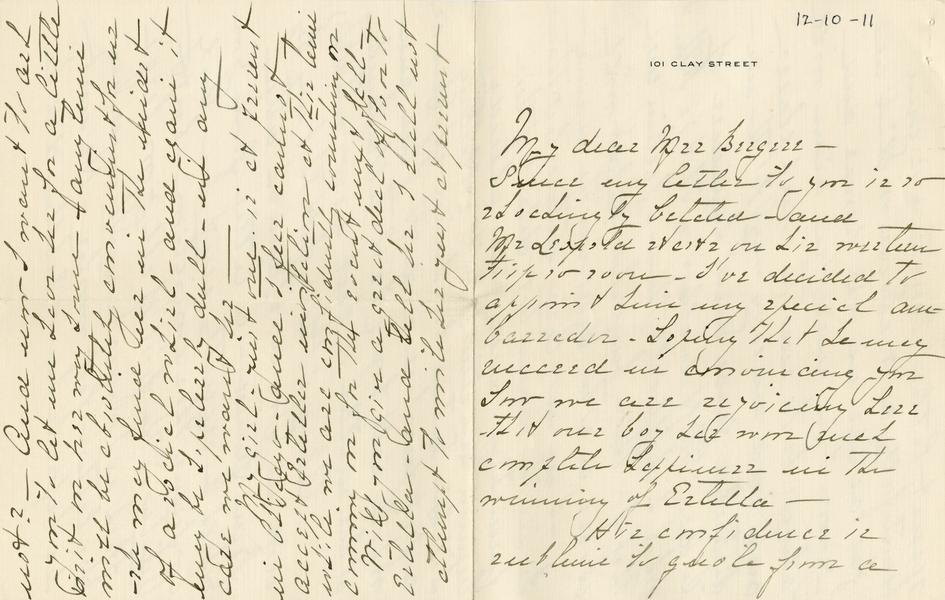 12-10-11
101 CLAY STREET
My dear Mrs Bergen —
Since my letter to you is so
shockingly belated – and
Mr Leopold starts on his western
trip so soon – I've decided to
appoint him my special am-
bassador – hoping that he may
succeed in convincing you
how we are rejoicing here
that our boy has won such
complete happiness in the
winning of Estella —
His confidence is
sublime to quote from a
not? — And now I want to ask
you to let us have her for a little
visit on her way home – any time
will be absolutely convenient for us
– she may find us in the midst
of a social whirl – and again it
may be hopelessly dull – in any
case we want her —
My girl just one is at present
in – and since she cannot
accept Estella's invitation at this time
while we are confidently counting on
coming on for the event of my
Will you give a great deal of love to
Estella – and tell her I shall not
attempt to write her just at present